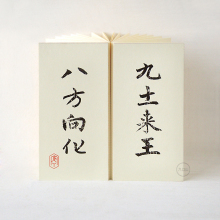 九土来王
八方向化